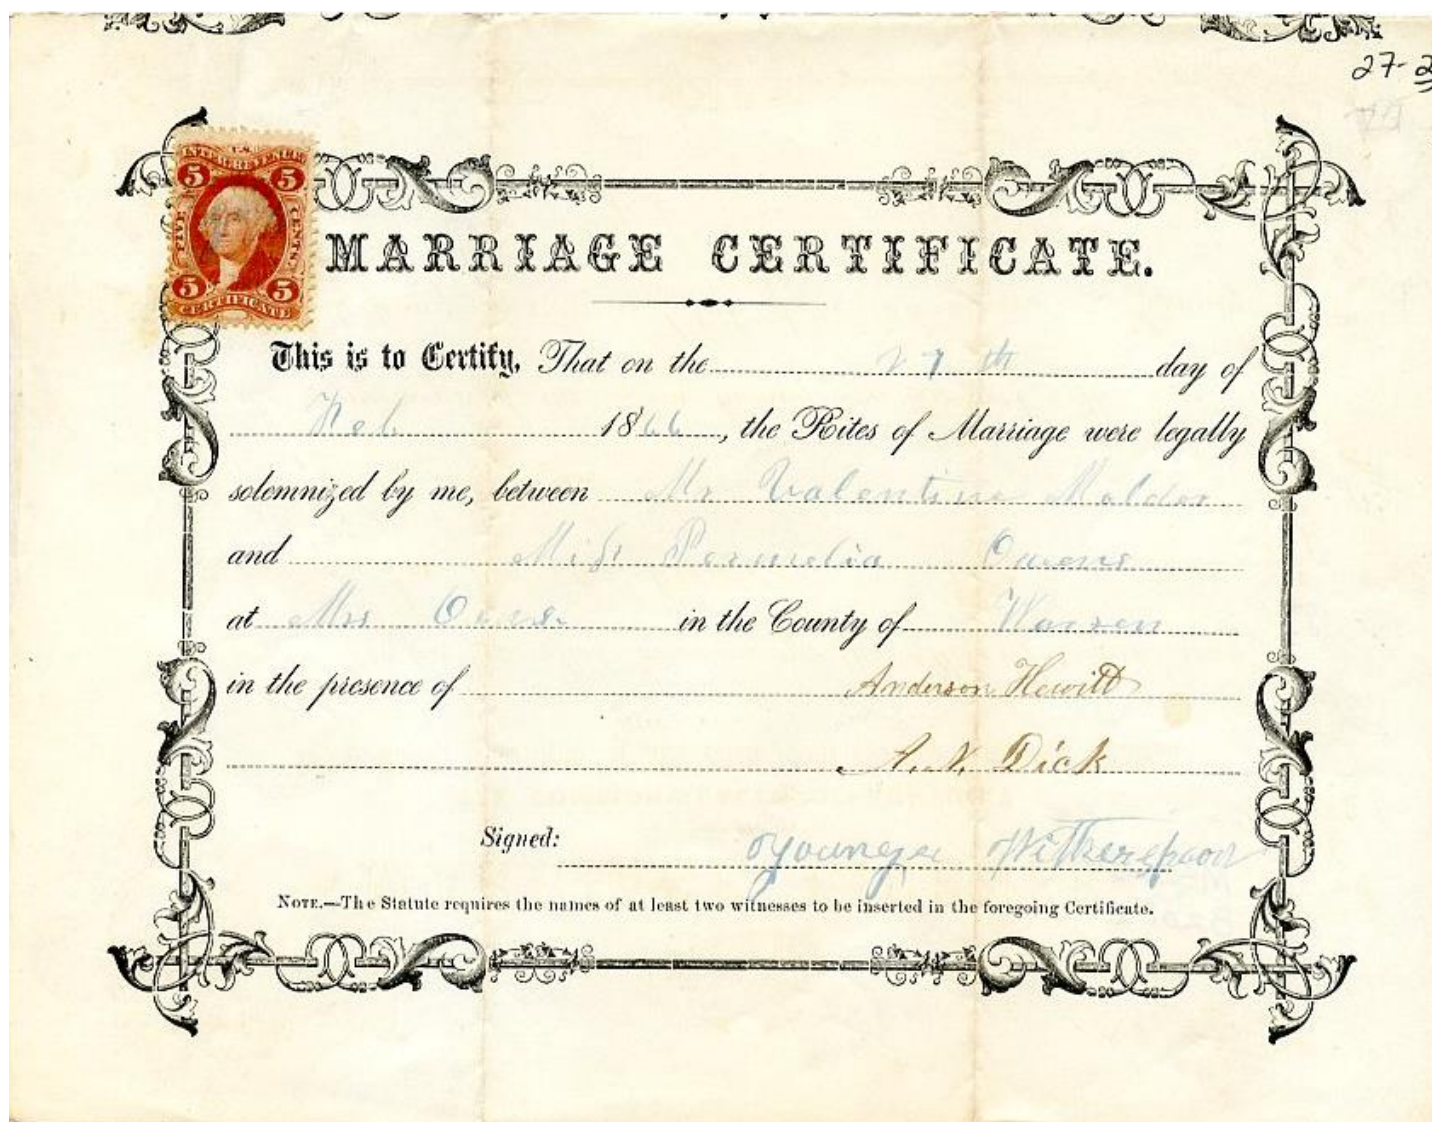 27-2
U.S.
INTER. REVENUE
5 5
FIVE CENTS.
5 5
CERTIFICATE
MARRIAGE CERTIFICATE.
This is to Certify, That on the 27th day of
Feb 1866, the Rites of Marriage were legally
solemnized by me, between Mr Valentine Molder
and Miss Permelia Owens
at Mrs in the County of Warren
in the presence of Anderson Hewitt
Dick
Signed: Younger Witherspoon
NOTE.—The Statute requires the names of at least two witnesses to be inserted in the foregoing Certificate.